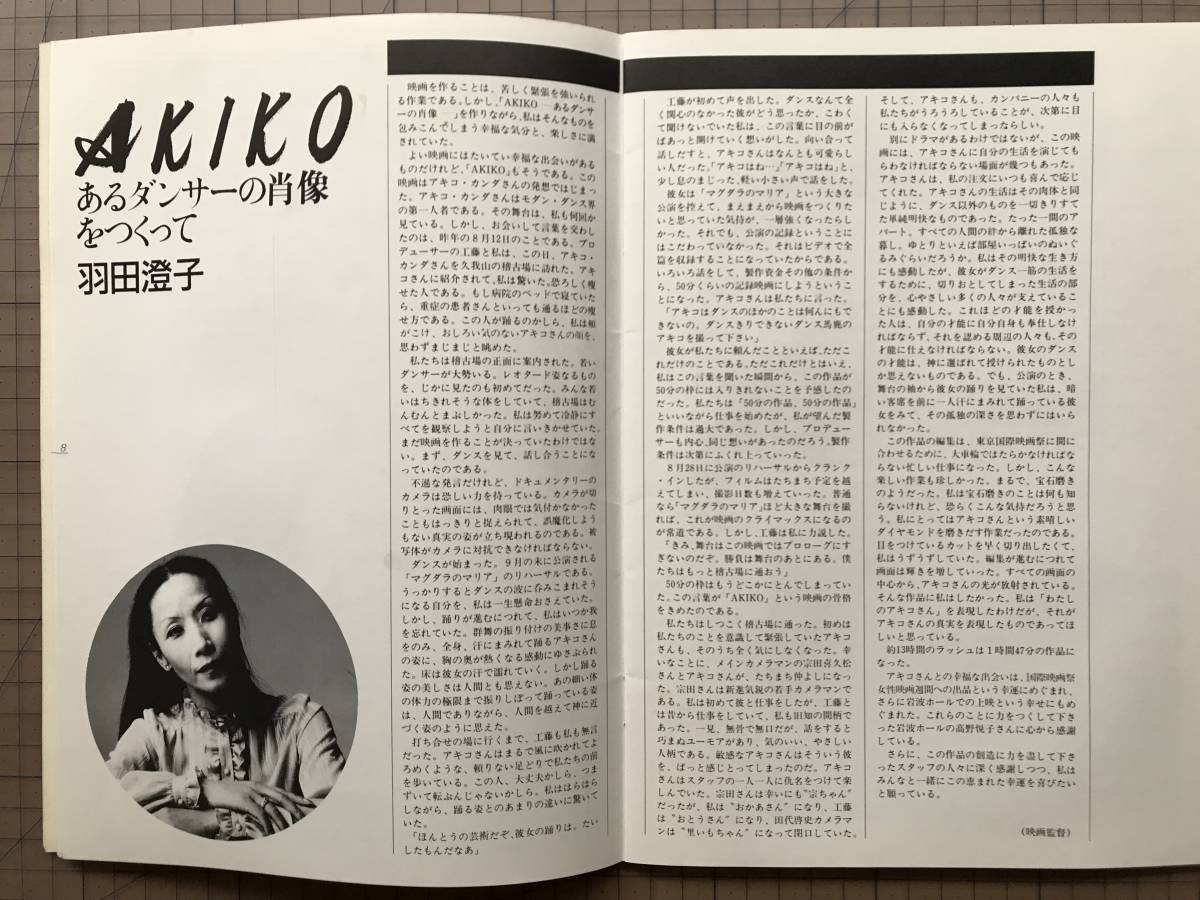 AKIKO
あるダンサーの肖像
をつくって
羽田澄子
8
映画を作ることは、苦しく緊張を強いられ
る作業である。しかし、「AKIKO—あるダンサ
ーの肖像—」を作りながら、私はそんなものを
包みこんでしまう幸福な気分と、楽しさに満
されていた。
よい映画にはたいてい幸福な出会いがある
ものだけれど、「AKIKO」もそうである。この
映画はアキコ・カンダさんの発想ではじまっ
た。アキコ・カンダさんはモダン・ダンス界
の第一人者である。その舞台は、私も何回か
見ている。しかし、お会いして言葉を交わし
たのは、昨年の8月12日のことである。プロ
デューサーの工藤と私は、この日、アキコ・
カンダさんを久我山の稽古場に訪れた。アキ
コさんに紹介されて、私は驚いた。恐ろしく痩
せた人である。もし病院のベッドで寝ていた
ら、重症の患者さんといっても通るほどの痩
せ方である。この人が踊るのかしら、私は頬
がこけ、おしろい気のないアキコさんの顔を、
思わずまじまじと眺めた。
私たちは稽古場の正面に案内された。若い
ダンサーが大勢いる。レオタード姿なるもの
を、じかに見たのも初めてだった。みんな若
いはちきれそうな体をしていて、稽古場はむ
んむんとまぶしかった。私は努めて冷静にす
べてを観察しようと自分に言いきかせていた。
まだ映画を作ることが決っていたわけではな
い。まず、ダンスを見て、話し合うことにな
っていたのである。
不遜な発言だけれど、ドキュメンタリーの
カメラは恐しい力を持っている。カメラが切
りとった画面には、肉眼では気付かなかった
こともはっきりと捉えられて、誤魔化しよう
もない真実の姿が立ち現われるのである。被
写体がカメラに対抗できなければならない。
ダンスが始まった。9月の末に公演される
「マグダラのマリア」のリハーサルである。
うっかりするとダンスの波に呑みこまれそう
になる自分を、私は一生懸命おさえていた。
しかし、踊りが進むにつれて、私はいつか我
を忘れていた。群舞の振り付けの美事さに息
をのみ、全身、汗にまみれて踊るアキコさん
の姿に、胸の奥が熱くなる感動にゆさぶられ
た。床は彼女の汗で濡れていく。しかし踊る
姿の美しさは人間とも思えない。あの細い体
の体力の極限まで振りしぼって踊っている姿
は、人間でありながら、人間を越えて神に近
づく姿のように思えた。
打ち合せの場に行くまで、工藤も私も無言
だった。アキコさんはまるで風に吹かれてよ
ろめくような、頼りない足どりで私たちの前
を歩いている。この人、大丈夫かしら、つま
ずいて転ぶんじゃないかしら。私ははらはら
しながら、踊る姿とのあまりの違いに驚いて
いた。
「ほんとうの芸術だぞ、彼女の踊りは。たい
したもんだなあ」
工藤が初めて声を出した。ダンスなんて全
く関心のなかった彼がどう思ったか、こわく
て聞けないでいた私は、この言葉に目の前が
ぱあっと開けていく想いがした。向い合って
話しだすと、アキコさんはなんとも可愛らし
い人だった。「アキコはね…」「アキコはね」と、
少し息のまじった、軽い小さい声で話をした。
彼女は「マグダラのマリア」という大きな
公演を控えて、まえまえから映画をつくりた
いと思っていた気持が、一層強くなったらし
かった。それでも、公演の記録ということに
はこだわっていなかった。それはビデオで全
篇を収録することになっていたからである。
いろいろ話をして、製作資金その他の条件か
ら、50分くらいの記録映画にしようというこ
とになった。アキコさんは私たちに言った。
「アキコはダンスのほかのことは何んにもで
きないの。ダンスきりできないダンス馬鹿の
アキコを撮って下さい」
彼女が私たちに頼んだことといえば、ただこ
れだけのことである。ただこれだけとはいえ、
私はこの言葉を聞いた瞬間から、この作品が
50分の枠には入りきれないことを予感したの
だった。私たちは「50分の作品、50分の作品」
といいながら仕事を始めたが、私が望んだ製
作条件は過大であった。しかし、プロデュー
サーも内心、同じ想いがあったのだろう。製作
条件は次第にふくれ上っていった。
8月28日に公演のリハーサルからクランク
・インしたが、フィルムはたちまち予定を越
えてしまい、撮影日数も増えていった。普通
なら「マグダラのマリア」ほど大きな舞台を撮
れば、これが映画のクライマックスになるの
が常道である。しかし、工藤は私に力説した。
「きみ、舞台はこの映画ではプロローグにす
ぎないのだぞ。勝負は舞台のあとにある。僕
たちはもっと稽古場に通おう」
50分の枠はもうどこかにとんでしまってい
た。この言葉が「AKIKO」という映画の骨格
をきめたのである。
私たちはしつこく稽古場に通った。初めは
私たちのことを意識して緊張していたアキコ
さんも、そのうち全く気にしなくなった。幸
いなことに、メインカメラマンの宗田喜久松
さんとアキコさんが、たちまち仲よしになっ
た。宗田さんは新進気鋭の若手カメラマンで
ある。私は初めて彼と仕事をしたが、工藤と
は昔から仕事をしていて、私も旧知の間柄で
あった。一見、無骨で無口だが、話をすると
巧まぬユーモアがあり、気のいい、やさしい
人柄である。敏感なアキコさんはそういう彼
を、ぱっと感じとってしまったのだ。アキコ
さんはスタッフの一人一人に仇名をつけて楽
しんでいた。宗田さんは幸いにも“宗ちゃん”
だったが、私は“おかあさん”になり、工藤
は“おとうさん”になり、田代啓史カメラマ
ンは“里いもちゃん”になって閉口していた。
そして、アキコさんも、カンパニーの人々も
私たちがうろうろしていることが、次第に目
にも入らなくなってしまったらしい。
別にドラマがあるわけではないが、この映
画には、アキコさんに自分の生活を演じても
らわなければならない場面が幾つもあった。
アキコさんは、私の注文にいつも喜んで応じ
てくれた。アキコさんの生活はその肉体と同
じように、ダンス以外のものを一切きりすて
た単純明快なものであった。たった一間のア
パート。すべての人間の絆から離れた孤独な
暮し。ゆとりといえば部屋いっぱいのぬいぐ
るみぐらいだろうか。私はその明快な生き方
にも感動したが、彼女がダンス一筋の生活を
するために、切りおとしてしまった生活の部
分を、心やさしい多くの人々が支えているこ
とにも感動した。これほどの才能を授かっ
た人は、自分の才能に自分自身も奉仕しなけ
ればならず、それを認める周辺の人々も、その
才能に仕えなければならない。彼女のダンス
の才能は、神に選ばれて授けられたものとし
か思えないものである。でも、公演のとき、
舞台の袖から彼女の踊りを見ていた私は、暗
い客席を前に一人汗にまみれて踊っている彼
女をみて、その孤独の深さを思わずにはいら
れなかった。
この作品の編集は、東京国際映画祭に間に
合わせるために、大車輪ではたらかなければな
らない忙しい仕事になった。しかし、こんな
楽しい作業も珍しかった。まるで、宝石磨き
のようだった。私は宝石磨きのことは何も知
らないけれど、恐らくこんな気持だろうと思
う。私にとってはアキコさんという素晴しい
ダイヤモンドを磨きだす作業だったのである。
目をつけているカットを早く切り出したくて、
私はうずうずしていた。編集が進むにつれて
画面は輝きを増していった。すべての画面の
中心から、アキコさんの光が放射されている。
そんな作品にはしたかった。私は「わたし
のアキコさん」を表現したわけだが、それが
アキコさんの真実を表現したものであってほ
しいと思っている。
約13時間のラッシュは1時間47分の作品に
なった。
アキコさんとの幸福な出会いは、国際映画祭
女性映画週間への出品という幸運にめぐまれ、
さらに岩波ホールでの上映という幸せにもめ
ぐまれた。これらのことに力をつくして下さ
った岩波ホールの高野悦子さんに心から感謝
している。
さらに、この作品の創造に力を盡して下さ
ったスタッフの人々に深く感謝しつつ、私は
みんなと一緒にこの恵まれた幸運を喜びたい
と願っている。
(映画監督)